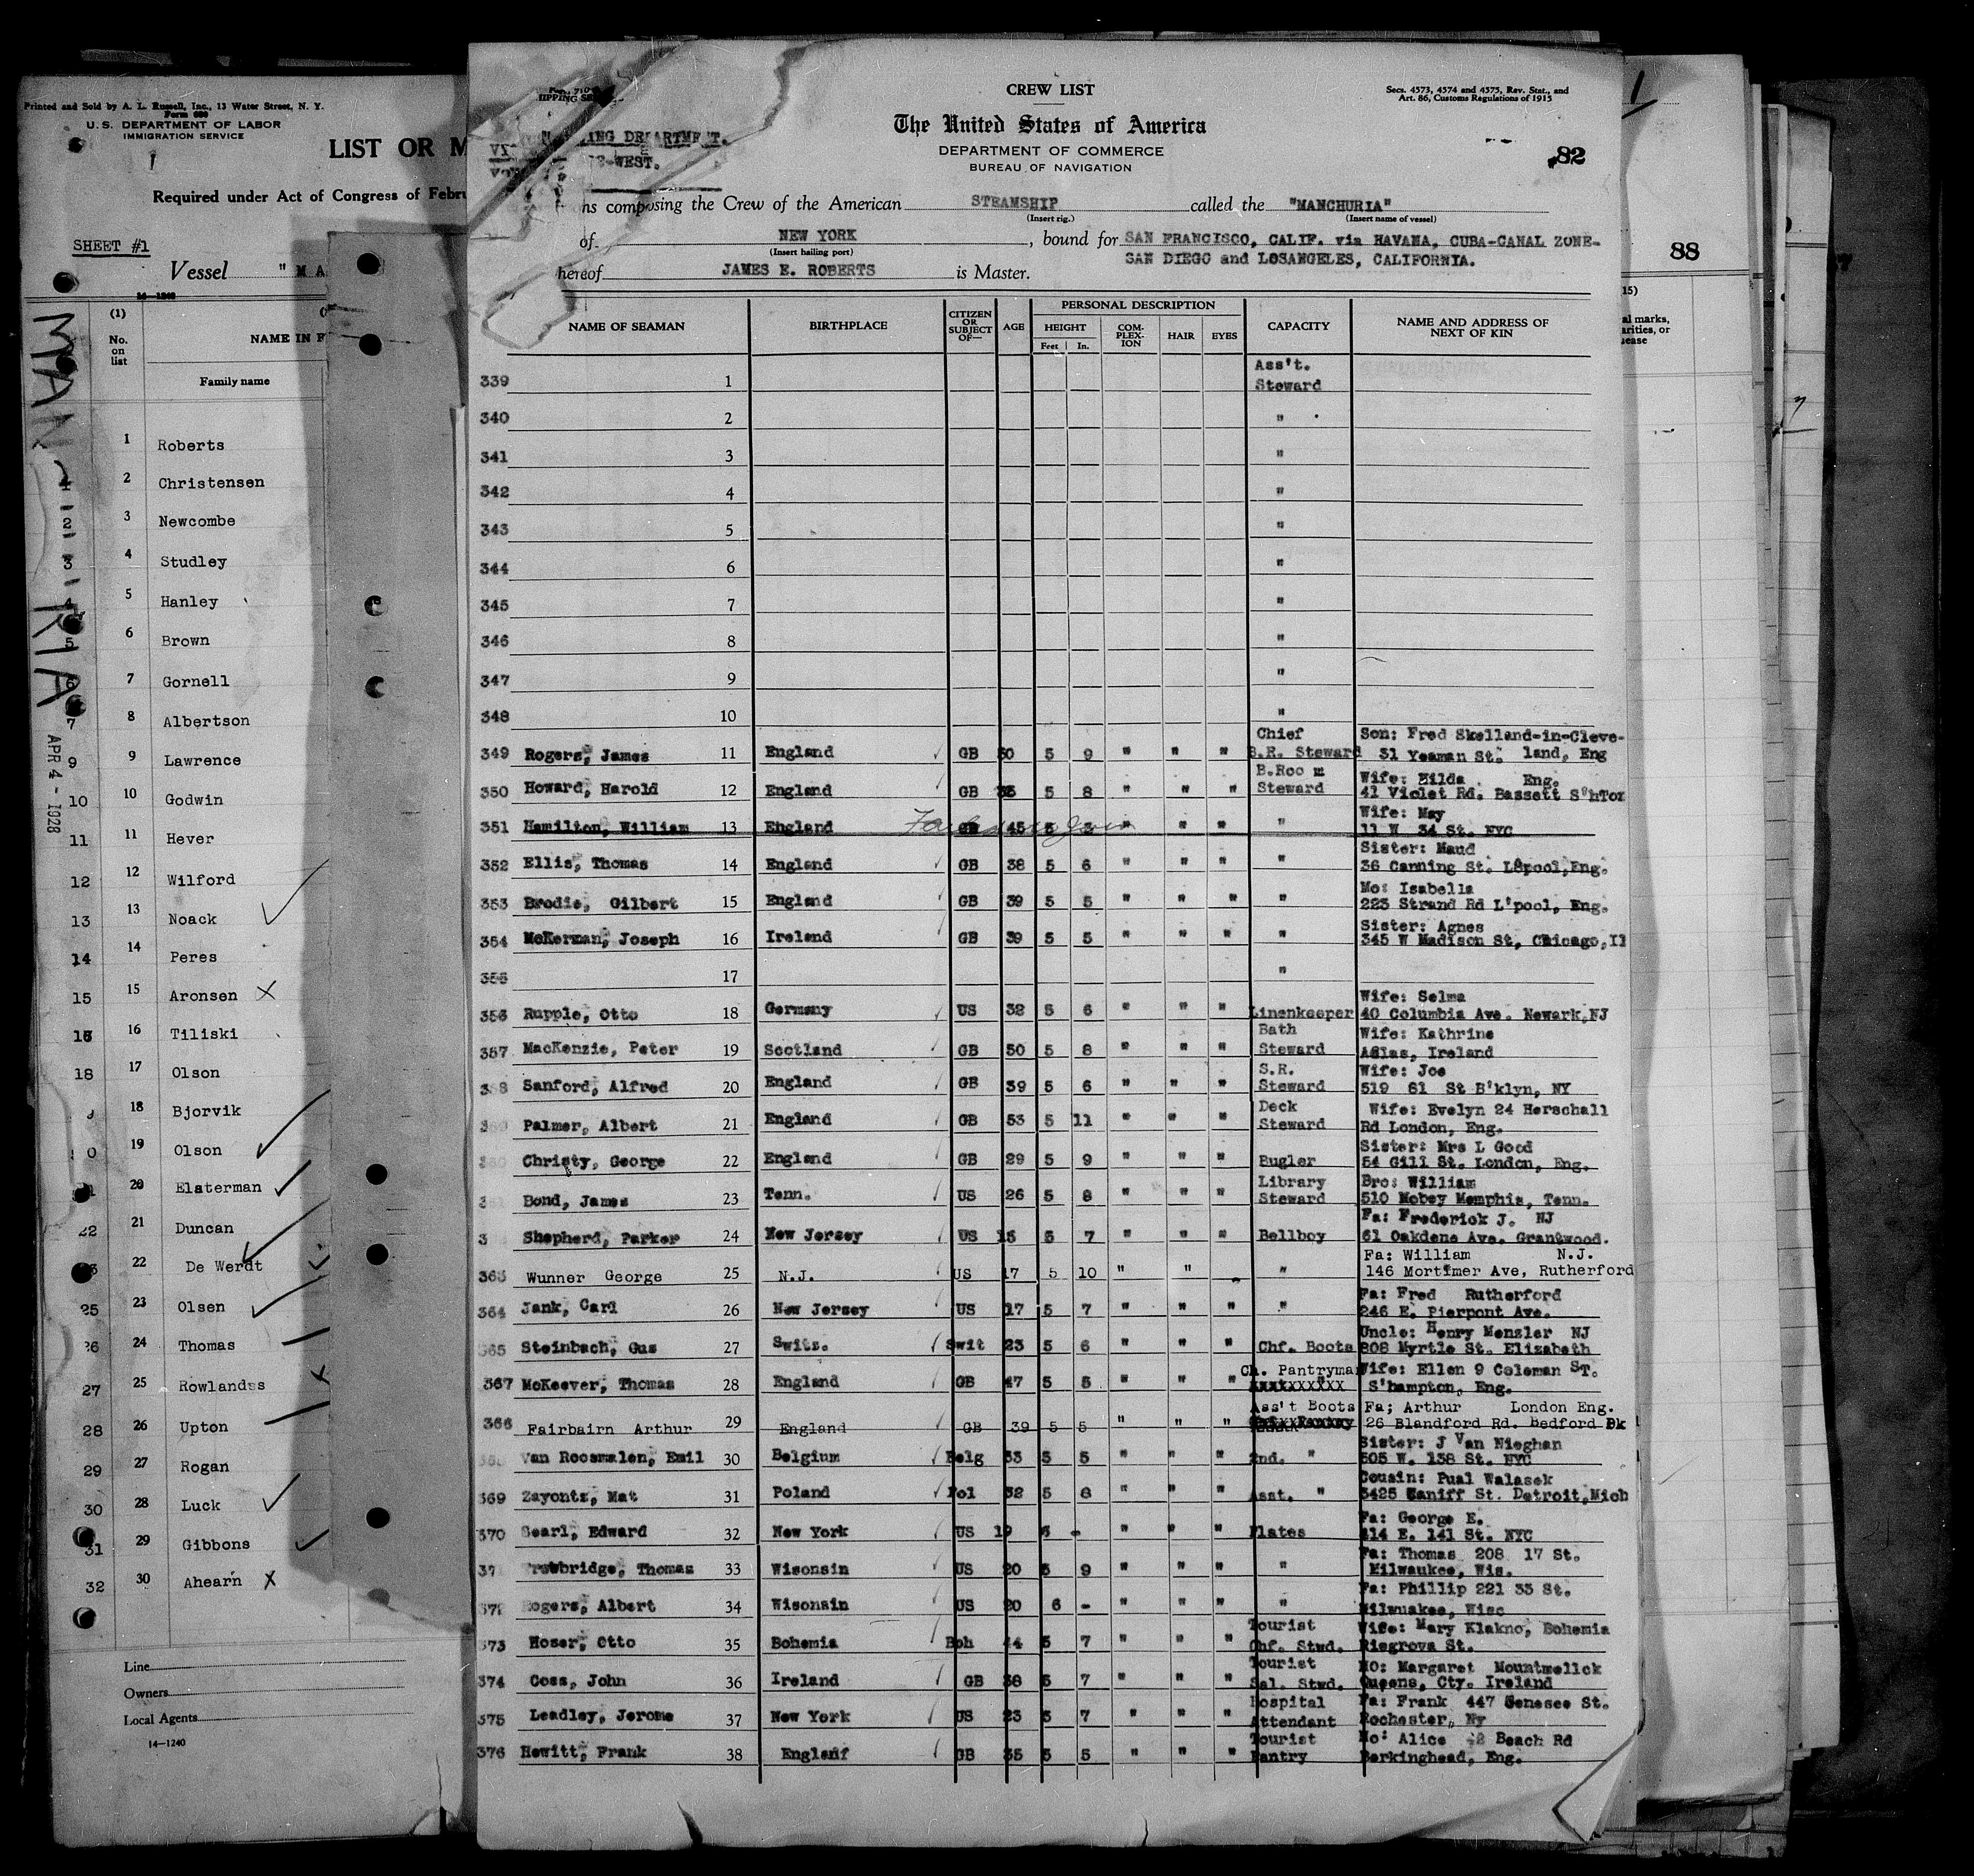 Printed and Sold by A. L. Russell, Inc., 13 Water Street, N. Y.
Form 680
U. S. DEPARTMENT OF LABOR
IMMIGRATION SERVICE
LIST OR M
Required under Act of Congress of Febru
SHEET #1
Vessel " M A
14-1240
(1)
No. on list
NAME IN F
Family name
MAN
RIA
APR 4 - 1928
1 Roberts
2 Christensen
3 Newcombe
4 Studley
5 Hanley
6 Brown
7 Gornell
8 Albertson
9 Lawrence
10 Godwin
11 Hever
12 Wilford
13 Noack
14 Peres
15 Aronsen X
16 Tiliski
17 Olson
18 Bjorvik
19 Olson
20 Elsterman
21 Duncan
22 De Werdt
23 Olsen
24 Thomas
25 Rowlandss
26 Upton
27 Rogan
28 Luck
29 Gibbons
30 Ahearn X
Line
Owners
Local Agents
14-1240
CREW LIST
Secs. 4573, 4574 and 4575, Rev. Stat., and
Art. 86, Customs Regulations of 1915
The United States of America
DEPARTMENT OF COMMERCE
BUREAU OF NAVIGATION
ING DEPARTMENT.
-WEST.
82
ns composing the Crew of the American STEAMSHIP called the "MANCHURIA"
(Insert rig.) (Insert name of vessel)
of NEW YORK, bound for SAN FRANCISCO, CALIF. via HAVANA, CUBA-CANAL ZONE-
(Insert hailing port) SAN DIEGO and LOSANGELES, CALIFORNIA.
hereof JAMES E. ROBERTS is Master.
NAME OF SEAMAN BIRTHPLACE CITIZEN OR SUBJECT OF— AGE PERSONAL DESCRIPTION CAPACITY NAME AND ADDRESS OF NEXT OF KIN
HEIGHT COM-PLEX-ION HAIR EYES
Feet In.
339 1 Ass't. Steward
340 2 "
341 3 "
342 4 "
343 5 "
344 6 "
345 7 "
346 8 "
347 9 "
348 10 "
349 Rogers, James 11 England GB 50 5 9 " " " Chief B.R. Steward Son: Fred Skelland-in-Cleve- 31 Yeaman St. land, Eng
350 Howard, Harold 12 England GB 5 8 " " " B.Roo m Steward Wife: Hilda Eng. 41 Violet Rd. Bassett S'hTon
351 Hamilton, William 13 England GB 45 5 " " " " Wife: May 11 W 34 St. NYC
352 Ellis, Thomas 14 England GB 38 5 6 " " " " Sister: Maud 36 Canning St. L'pool,Eng.
353 Brodie, Gilbert 15 England GB 39 5 5 " " " " Mo: Isabella 223 Strand Rd L'pool, Eng.
354 McKerman, Joseph 16 Ireland GB 39 5 5 " " " " Sister: Agnes 345 W Madison St, Chicago,Il
355 17 "
356 Rupple, Otto 18 Germany US 32 5 6 " " " Linenkeeper Wife: Selma 40 Columbia Ave. Newark,NJ
357 MacKenzie, Peter 19 Scotland GB 50 5 8 " " " Bath Steward Wife: Kathrine Ireland
Sanford, Alfred 20 England GB 39 5 6 " " " S.R. Steward Wife: Joe 519 61 St B'klyn, NY
Palmer, Albert 21 England GB 53 5 11 " " " Deck Steward Wife: Evelyn 24 Herschall Rd London, Eng.
Christy, George 22 England GB 29 5 9 " " " Bugler Sister: Mrs L Good 54 Gill St. London, Eng.
Bond, James 23 Tenn. US 26 5 8 " " " Library Steward Bro: William 510 Mobey Memphis, Tenn.
3 Shepherd, Parker 24 New Jersey US 15 5 7 " " " Bellboy Fa: Frederick J. NJ 61 Oakdene Ave. Grantwood.
363 Wunner George 25 N.J. US 17 5 10 " " " " Fa: William N.J. 146 Mortimer Ave, Rutherford
364 Jank, Carl 26 New Jersey US 17 5 7 " " " " Fa: Fred Rutherford 246 E. Pierpont Ave.
365 Steinbach, Gus 27 Switz. Swit 23 5 6 " " " Chf. Boots Uncle: Henry Menzler NJ 808 Myrtle St. Elizabeth
367 McKeever, Thomas 28 England GB 47 5 5 " " " Ch. Pantryman XXXXXXXXXX Wife: Ellen 9 Coleman ST. S'hampton, Eng.
366 Fairbairn Arthur 29 England GB 39 5 5 " " " Ass't Boots Fa; Arthur London Eng. 26 Blandford Rd. Bedford Pk
Van Roosmalen, Emil 30 Belgium Belg 33 5 5 " " " 2nd. " Sister: J Van Nieghan 505 W. 138 St. NYC
369 Zayontz, Mat 31 Poland Pol 32 5 8 " " " Asst. " Cousin: Pual Walasek 3425 Caniff St. Detroit,Mich
370 Searl, Edward 32 New York US 19 6 - " " " Plates Fa: George E. 414 E. 141 St. NYC
37 rowbridge, Thomas 33 Wisonsin US 20 5 9 " " " " Fa: Thomas 208 17 St. Milwaukee, Wis.
372 Rogers, Albert 34 Wisonsin US 20 6 - " " " " Fa: Phillip 221 33 St. Milwuakee, Wisc
373 Moser, Otto 35 Bohemia Boh 44 5 7 " " " Tourist Chf. Stwd. Wife: Mary Klakno, Bohemia Riegrova St.
374 Coss, John 36 Ireland GB 38 5 7 " " " Tourist Sal. Stwd. MO: Margaret Mountmellck Queens, Cty. Ireland
375 Leadley, Jerome 37 New York US 23 5 7 " " " Hospital Attendant Fa: Frank 447 Genesee St. Rochester, Ny
376 Hewitt, Frank 38 Englanf GB 35 5 5 " " " Tourist Pantry Mo: Alice 42 Beach Rd Berkinghead, Eng.
88
15)
al marks,
arities, or
sease